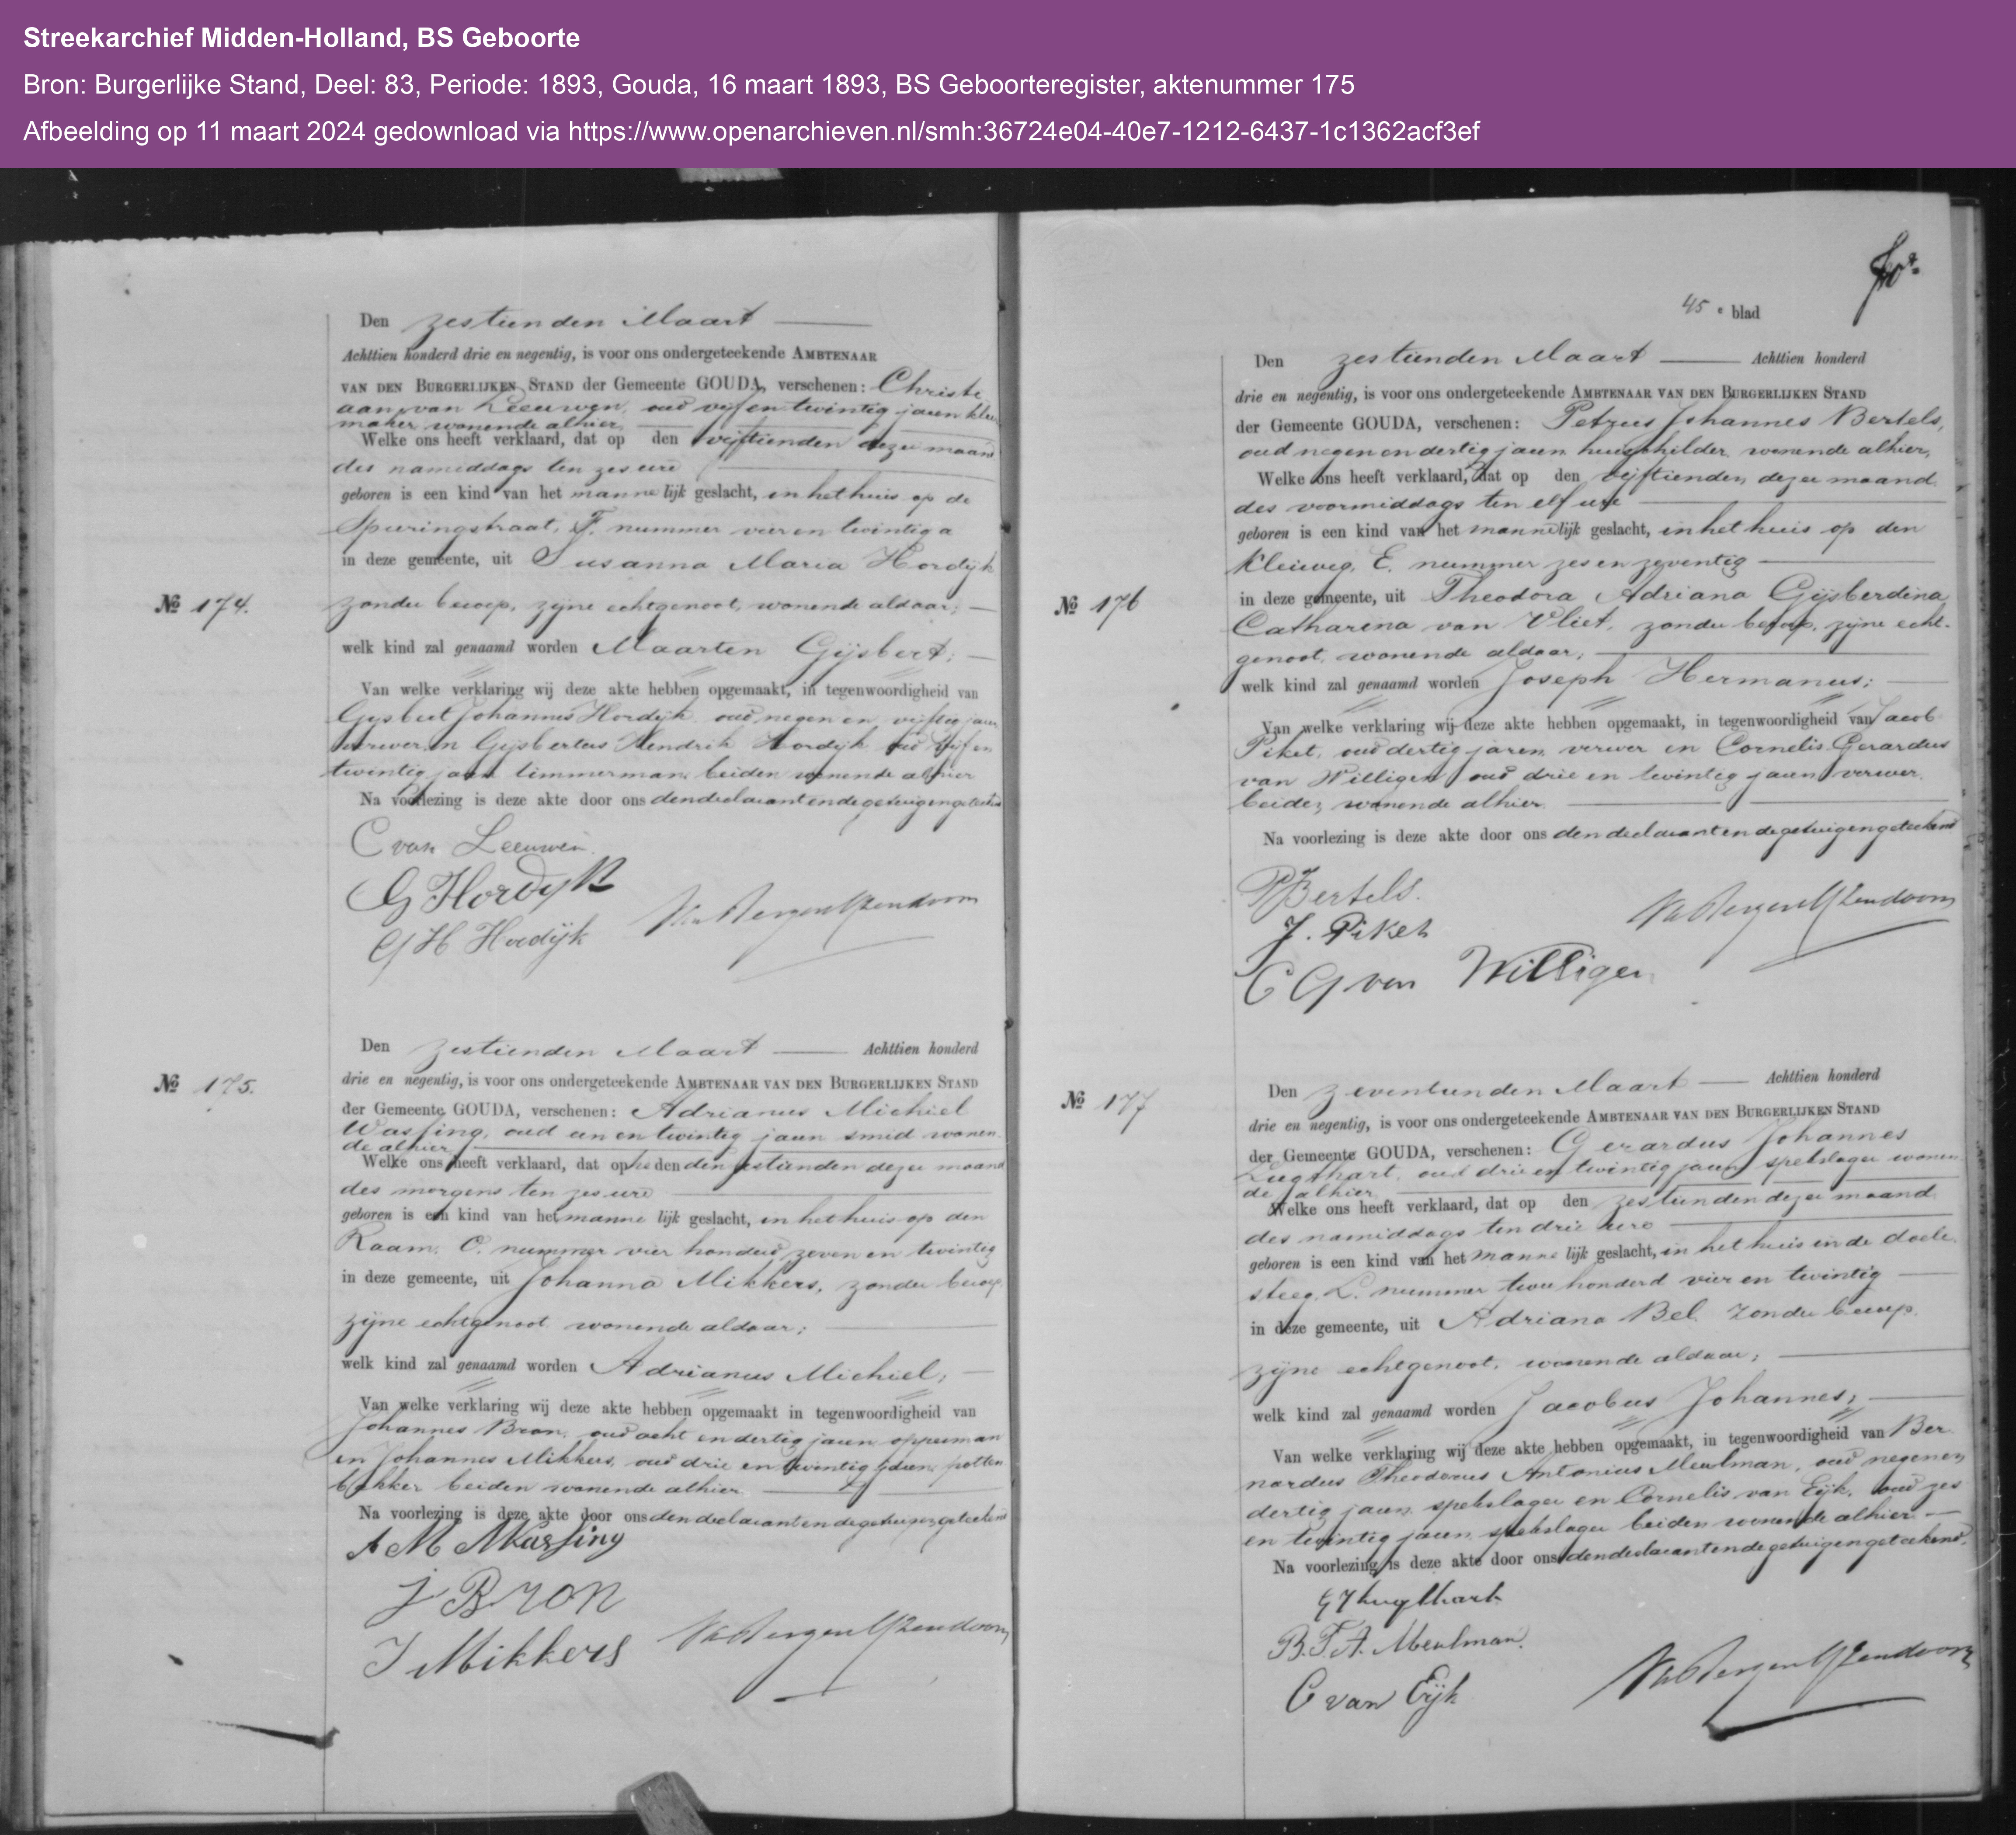 Streekarchief Midden-Holland, BS Geboorte
Bron: Burgerlijke Stand, Deel: 83, Periode: 1893, Gouda, 16 maart 1893, BS Geboorteregister, aktenummer 175
Afbeelding op 11 maart 2024 gedownload via https://www.openarchieven.nl/smh:36724e04-40e7-1212-6437-1c1362acf3ef
Den zestienden Maart
Achttien honderd drie en negentig, is voor ons ondergeteekende AMBTENAAR
VAN DEN BURGERLIJKEN STAND der Gemeente GOUDA, verschenen: Christi
aan van Leeuwen, oud vijf en twintig jaren
maker wonende alhier
Welke ons heeft verklaard, dat op den vijftienden dezer maand
des namiddags ten zes ure
geboren is een kind van het mannelijk geslacht, in het huis op de
Spieringstraat, F. nummer vier en twintig a
in deze gemeente, uit Susanna Maria Hordijk
No 174. zonder beroep, zijne echtgenoot, wonende aldaar;
welk kind zal genaamd worden Maarten Gijsbert;
Van welke verklaring wij deze akte hebben opgemaakt, in tegenwoordigheid van
Gijsbert Johannes Hordijk oud negen en vijftig jaren
verwer, en Gijsbertus Hendrik Hordijk oud vijf en
twintig jaren timmerman beiden wonende alhier
Na voorlezing is deze akte door ons den declarant en de getuigen geteekend
C van Leeuwen
G Hordyk
G H Hordijk
Den zestienden Maart Achttien honderd
No 175. drie en negentig, is voor ons ondergeteekende AMBTENAAR VAN DEN BURGERLIJKEN STAND
der Gemeente GOUDA, verschenen: Adrianus Michiel
Wassing, oud een en twintig jaren smid wonen
de alhier
Welke ons heeft verklaard, dat op den zestienden dezer maand
des morgens ten zes ure
geboren is een kind van het mannelijk geslacht, in het huis op den
Raam, C. nummer vier honderd zeven en twintig
in deze gemeente, uit Johanna Mikkers, zonder beroep
zijne echtgenoot wonende aldaar;
welk kind zal genaamd worden Adrianus Michiel;
Van welke verklaring wij deze akte hebben opgemaakt in tegenwoordigheid van
Johannes Bron, oud acht en dertig jaren opperman
en Johannes Mikkers, oud drie en twintig jaren potten
bakker beiden wonende alhier
Na voorlezing is deze akte door ons den declarant en de getuigen geteekend
A M Wassing
J Bron
J Mikkers
45e blad
Den zestienden Maart Achttien honderd
drie en negentig, is voor ons ondergeteekende AMBTENAAR VAN DEN BURGERLIJKEN STAND
der Gemeente GOUDA, verschenen: Petrus Johannes Bertels,
oud negen en dertig jaren huisschilder wonende alhier,
Welke ons heeft verklaard, dat op den vijftienden dezer maand
des voormiddags ten elf ure
geboren is een kind van het mannelijk geslacht, in het huis op den
Kleiweg, E. nummer zes en zeventig
No 176 in deze gemeente, uit Theodora Adriana Gijsberdina
Catharina van Vliet, zonder beroep, zijne echt-
genoot, wonende aldaar;
welk kind zal genaamd worden Joseph Hermanus;
Van welke verklaring wij deze akte hebben opgemaakt, in tegenwoordigheid van Jacob
Piket, oud dertig jaren, verwer en Cornelis Gerardus
van Willigen oud drie en twintig jaren verwer
beiden wonende alhier
Na voorlezing is deze akte door ons den declarant en de getuigen geteekend
PJBertels.
J. Piket
C G van Willigen
Den zeventienden Maart Achttien honderd
No 177 drie en negentig, is voor ons ondergeteekende AMBTENAAR VAN DEN BURGERLIJKEN STAND
der Gemeente GOUDA, verschenen: Gerardus Johannes
Lugthart, oud drie en twintig jaren spekslager wonen
de alhier
Welke ons heeft verklaard, dat op den zestienden dezer maand
des namiddags ten drie ure
geboren is een kind van het mannelijk geslacht, in het huis in de doele
steeg, L. nummer twee honderd vier en twintig
in deze gemeente, uit Adriana Bel zonder beroep.
zijne echtgenoot, wonende aldaar;
welk kind zal genaamd worden Jacobus Johannes;
Van welke verklaring wij deze akte hebben opgemaakt, in tegenwoordigheid van Ber
nardus Theodorus Antonius Meulman, oud negen en
dertig jaren, spekslager en Cornelis van Eijk, oud zes
en twintig jaren, spekslager beiden wonende alhier
Na voorlezing is deze akte door ons den declarant en de getuigen geteekend.
B.T.A. Meulman.
C van Eijk